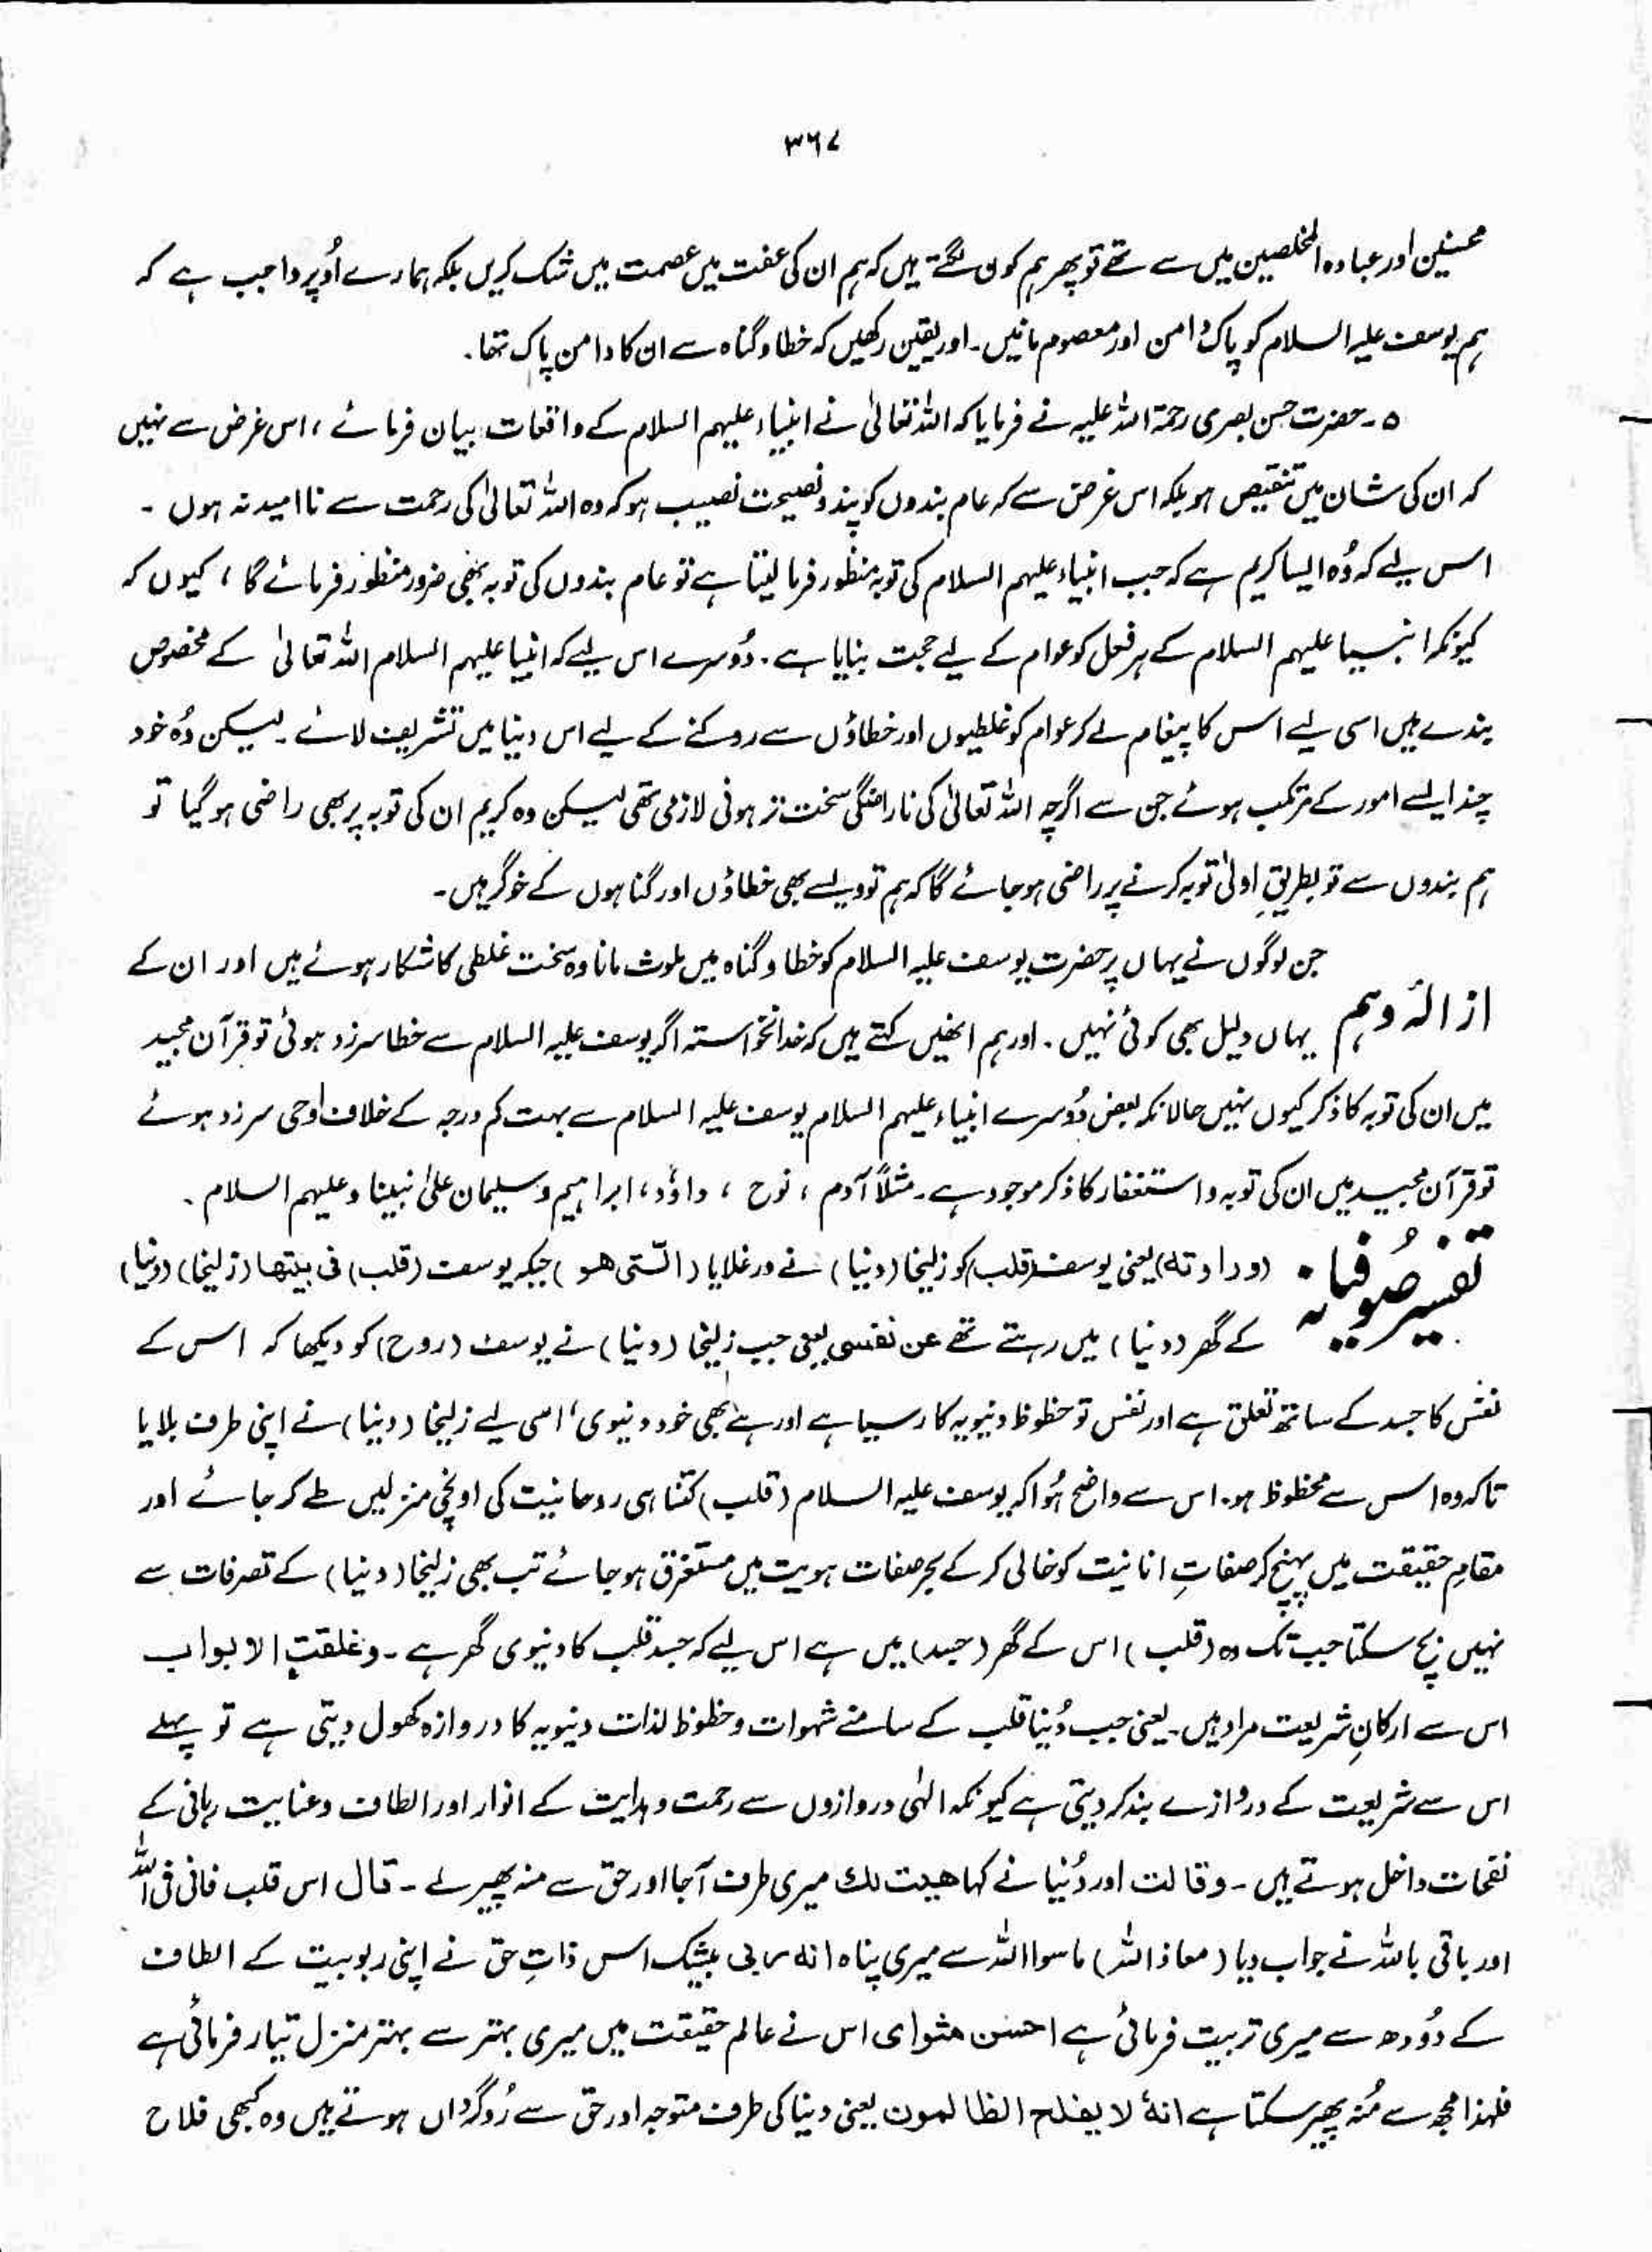 ۳۶۷
محسنین اور عبادہ المخلصین میں سے تھے تو پھر ہم کون لگتے ہیں کہ ہم ان کی عفت میں عصمت میں شک کریں بلکہ ہمارے اُوپر واجب ہے کہ
ہم یوسف علیہ السلام کو پاک دامن اور معصوم مانیں۔ اور یقین رکھیں کہ خطا و گناہ سے ان کا دامن پاک تھا۔
۵۔ حضرت حسن بصری رحمۃ اللہ علیہ نے فرمایا کہ اللہ تعالیٰ نے انبیاء علیہم السلام کے واقعات بیان فرمائے ، اس غرض سے نہیں
کہ ان کی شان میں تنقیص ہو بلکہ اس غرض سے کہ عام بندوں کو پند و نصیحت نصیب ہو کہ وہ اللہ تعالیٰ کی رحمت سے ناامید نہ ہوں ۔
اس لیے کہ وُہ ایسا کریم ہے کہ جب انبیاء علیہم السلام کی توبہ منظور فرما لیتا ہے تو عام بندوں کی توبہ بھی ضرور منظور فرمائے گا ، کیوں کہ
کیونکہ انبیا علیہم السلام کے ہر فعل کو عوام کے لیے حجت بنایا ہے ۔ دُوسرے اس لیے کہ انبیا علیہم السلام اللہ تعالیٰ کے مخصوص
بندے ہیں اسی لیے اس کا پیغام لے کر عوام کو غلطیوں اور خطاؤں سے روکنے کے لیے اس دنیا میں تشریف لائے ۔ لیکن وُہ خود
چند ایسے امور کے مرتکب ہوئے جن سے اگرچہ اللہ تعالیٰ کی ناراضگی سخت تر ہونی لازمی تھی لیکن وہ کریم ان کی توبہ پر بھی راضی ہو گیا تو
ہم بندوں سے تو بطریقِ اولیٰ توبہ کرنے پر راضی ہو جائے گا کہ ہم تو ویسے بھی خطاؤں اور گناہوں کے خوگر ہیں۔
جن لوگوں نے یہاں پر حضرت یوسف علیہ السلام کو خطا و گناہ میں ملوث مانا وہ سخت غلطی کا شکار ہوئے ہیں اور ان کے
ازالۂ وہم یہاں دلیل بھی کوئی نہیں ۔ اور ہم انھیں کہتے ہیں کہ خدانخواستہ اگر یوسف علیہ السلام سے خطا سرزد ہوئی تو قرآن مجید
میں ان کی توبہ کا ذکر کیوں نہیں حالانکہ بعض دُوسرے انبیاء علیہم السلام یوسف علیہ السلام سے بہت کم درجہ کے خلاف اوحی سرزد ہوئے
تو قرآن مجید میں ان کی توبہ و استغفار کا ذکر موجود ہے ۔ مثلاً آدم ، نوح ، داؤد ، ابراہیم و سلیمان علیٰ نبینا و علیہم السلام ۔
تفسیر صُوفیانہ (وراودتہ) یعنی یوسف (قلب) کو زلیخا (دنیا) نے ورغلایا (التی ھو) جبکہ یوسف (قلب) فی بیتھا (زلیخا) (دنیا)
کے گھر (دنیا) میں رہتے تھے عن نفسہ یعنی جب زلیخا (دنیا) نے یوسف (روح) کو دیکھا کہ اس کے
نفس کا جسد کے ساتھ تعلق ہے اور نفس تو حظوظ دنیویہ کا رسیا ہے اور ہے بھی خود دنیوی ، اسی لیے زلیخا (دنیا) نے اپنی طرف بلایا
تاکہ وہ اس سے محظوظ ہو۔ اس سے واضح ہُوا کہ یوسف علیہ السلام (قلب) کتنا ہی روحانیت کی اونچی منزلیں طے کر جائے اور
مقامِ حقیقت میں پہنچ کر صفاتِ انانیت کو خالی کر کے بحر صفات ہویت میں مستغرق ہو جائے تب بھی زلیخا (دنیا) کے تصرفات سے
نہیں بچ سکتا جب تک وہ (قلب) اس کے گھر (جسد) میں ہے اس لیے کہ جسد قلب کا دنیوی گھر ہے ۔ وغلقت الابواب
اس سے ارکانِ شریعت مراد ہیں۔ یعنی جب دُنیا قلب کے سامنے شہوات و حظوظ لذات دنیویہ کا دروازہ کھول دیتی ہے تو پہلے
اس سے شریعت کے دروازے بند کر دیتی ہے کیونکہ الٰہی دروازوں سے رحمت و ہدایت کے انوار اور الطاف و عنایت ربانی کے
نفحات داخل ہوتے ہیں ۔ وقالت اور دُنیا نے کہا ھیت لک میری طرف آجا اور حق سے منہ پھیر لے ۔ قال اس قلب فانی فی اللہ
اور باقی باللہ نے جواب دیا (معاذ اللہ) ماسوا اللہ سے میری پناہ انہ ربی بیشک اس ذاتِ حق نے اپنی ربوبیت کے الطاف
کے دُودھ سے میری تربیت فرمائی ہے احسن مثوای اس نے عالم حقیقت میں میری بہتر سے بہتر منزل تیار فرمائی ہے
فلہذا مجھ سے مُنہ پھیر سکتا ہے انہٗ لا یفلح الظالمون یعنی دنیا کی طرف متوجہ اور حق سے رُوگرداں ہوتے ہیں وہ کبھی فلاح